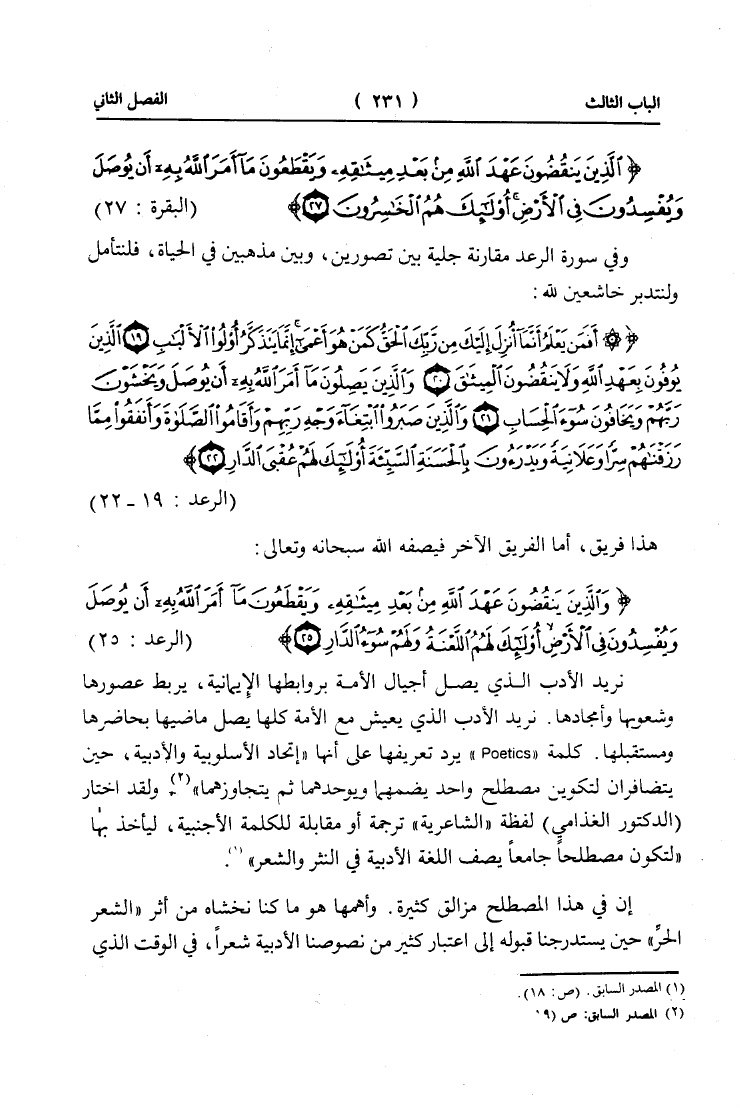 الباب الثالث ( ٢٣١ ) الفصل الثاني
﴿ ٱلَّذِينَ يَنقُضُونَ عَهْدَ ٱللَّهِ مِنۢ بَعْدِ مِيثَٰقِهِۦ وَيَقْطَعُونَ مَآ أَمَرَ ٱللَّهُ بِهِۦٓ أَن يُوصَلَ
وَيُفْسِدُونَ فِى ٱلْأَرْضِ ۚ أُو۟لَٰٓئِكَ هُمُ ٱلْخَٰسِرُونَ ٢٧ ﴾ (البقرة : ٢٧)
وفي سورة الرعد مقارنة جلية بين تصورين، وبين مذهبين في الحياة، فلنتأمل
ولنتدبر خاشعين لله :
﴿ ۞ أَفَمَن يَعْلَمُ أَنَّمَآ أُنزِلَ إِلَيْكَ مِن رَّبِّكَ ٱلْحَقُّ كَمَنْ هُوَ أَعْمَىٰٓ ۚ إِنَّمَا يَتَذَكَّرُ أُو۟لُوا۟ ٱلْأَلْبَٰبِ ١٩ ٱلَّذِينَ
يُوفُونَ بِعَهْدِ ٱللَّهِ وَلَا يَنقُضُونَ ٱلْمِيثَٰقَ ٢٠ وَٱلَّذِينَ يَصِلُونَ مَآ أَمَرَ ٱللَّهُ بِهِۦٓ أَن يُوصَلَ وَيَخْشَوْنَ
رَبَّهُمْ وَيَخَافُونَ سُوٓءَ ٱلْحِسَابِ ٢١ وَٱلَّذِينَ صَبَرُوا۟ ٱبْتِغَآءَ وَجْهِ رَبِّهِمْ وَأَقَامُوا۟ ٱلصَّلَوٰةَ وَأَنفَقُوا۟ مِمَّا
رَزَقْنَٰهُمْ سِرًّا وَعَلَانِيَةً وَيَدْرَءُونَ بِٱلْحَسَنَةِ ٱلسَّيِّئَةَ أُو۟لَٰٓئِكَ لَهُمْ عُقْبَى ٱلدَّارِ ٢٢ ﴾
(الرعد : ١٩ - ٢٢)
هذا فريق، أما الفريق الآخر فيصفه الله سبحانه وتعالى :
﴿ وَٱلَّذِينَ يَنقُضُونَ عَهْدَ ٱللَّهِ مِنۢ بَعْدِ مِيثَٰقِهِۦ وَيَقْطَعُونَ مَآ أَمَرَ ٱللَّهُ بِهِۦٓ أَن يُوصَلَ
وَيُفْسِدُونَ فِى ٱلْأَرْضِ ۙ أُو۟لَٰٓئِكَ لَهُمُ ٱللَّعْنَةُ وَلَهُمْ سُوٓءُ ٱلدَّارِ ٢٥ ﴾ (الرعد : ٢٥)
نريد الأدب الذي يصل أجيال الأمة بروابطها الإيمانية، يربط عصورها
وشعوبها وأمجادها. نريد الأدب الذي يعيش مع الأمة كلها يصل ماضيها بحاضرها
ومستقبلها. كلمة «Poetics» يرد تعريفها على أنها «إتحاد الأسلوبية والأدبية، حين
يتضافران لتكوين مصطلح واحد يضمهما ويوحدهما ثم يتجاوزهما»(٢). ولقد اختار
(الدكتور الغذامي) لفظة «الشاعرية» ترجمة أو مقابلة للكلمة الأجنبية، ليأخذ بها
«لتكون مصطلحاً جامعاً يصف اللغة الأدبية في النثر والشعر»(١).
إن في هذا المصطلح مزالق كثيرة. وأهمها هو ما كنا نخشاه من أثر «الشعر
الحرِّ» حين يستدرجنا قبوله إلى اعتبار كثير من نصوصنا الأدبية شعراً، في الوقت الذي
(١) المصدر السابق. (ص: ١٨).
(٢) المصدر السابق: ص (١٩